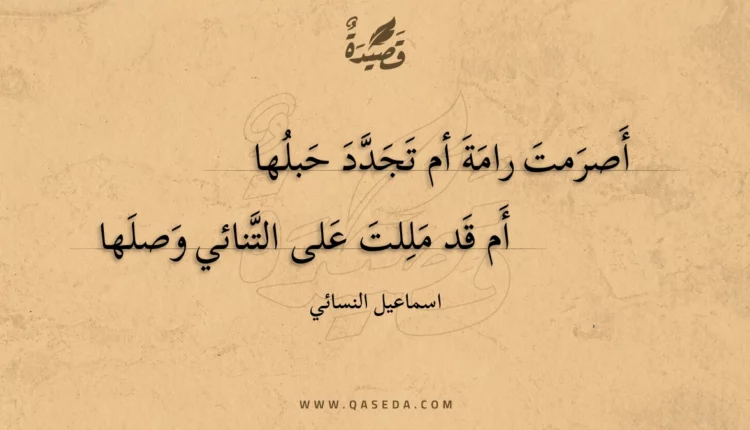 قَصِيْدَةٌ
أَصرَمتَ رامَةَ أم تَجَدَّدَ حَبلُها
أَم قَد مَلِلتَ عَلى التَّنائي وَصلَها
اسماعيل النسائي
WWW.QASEDA.COM